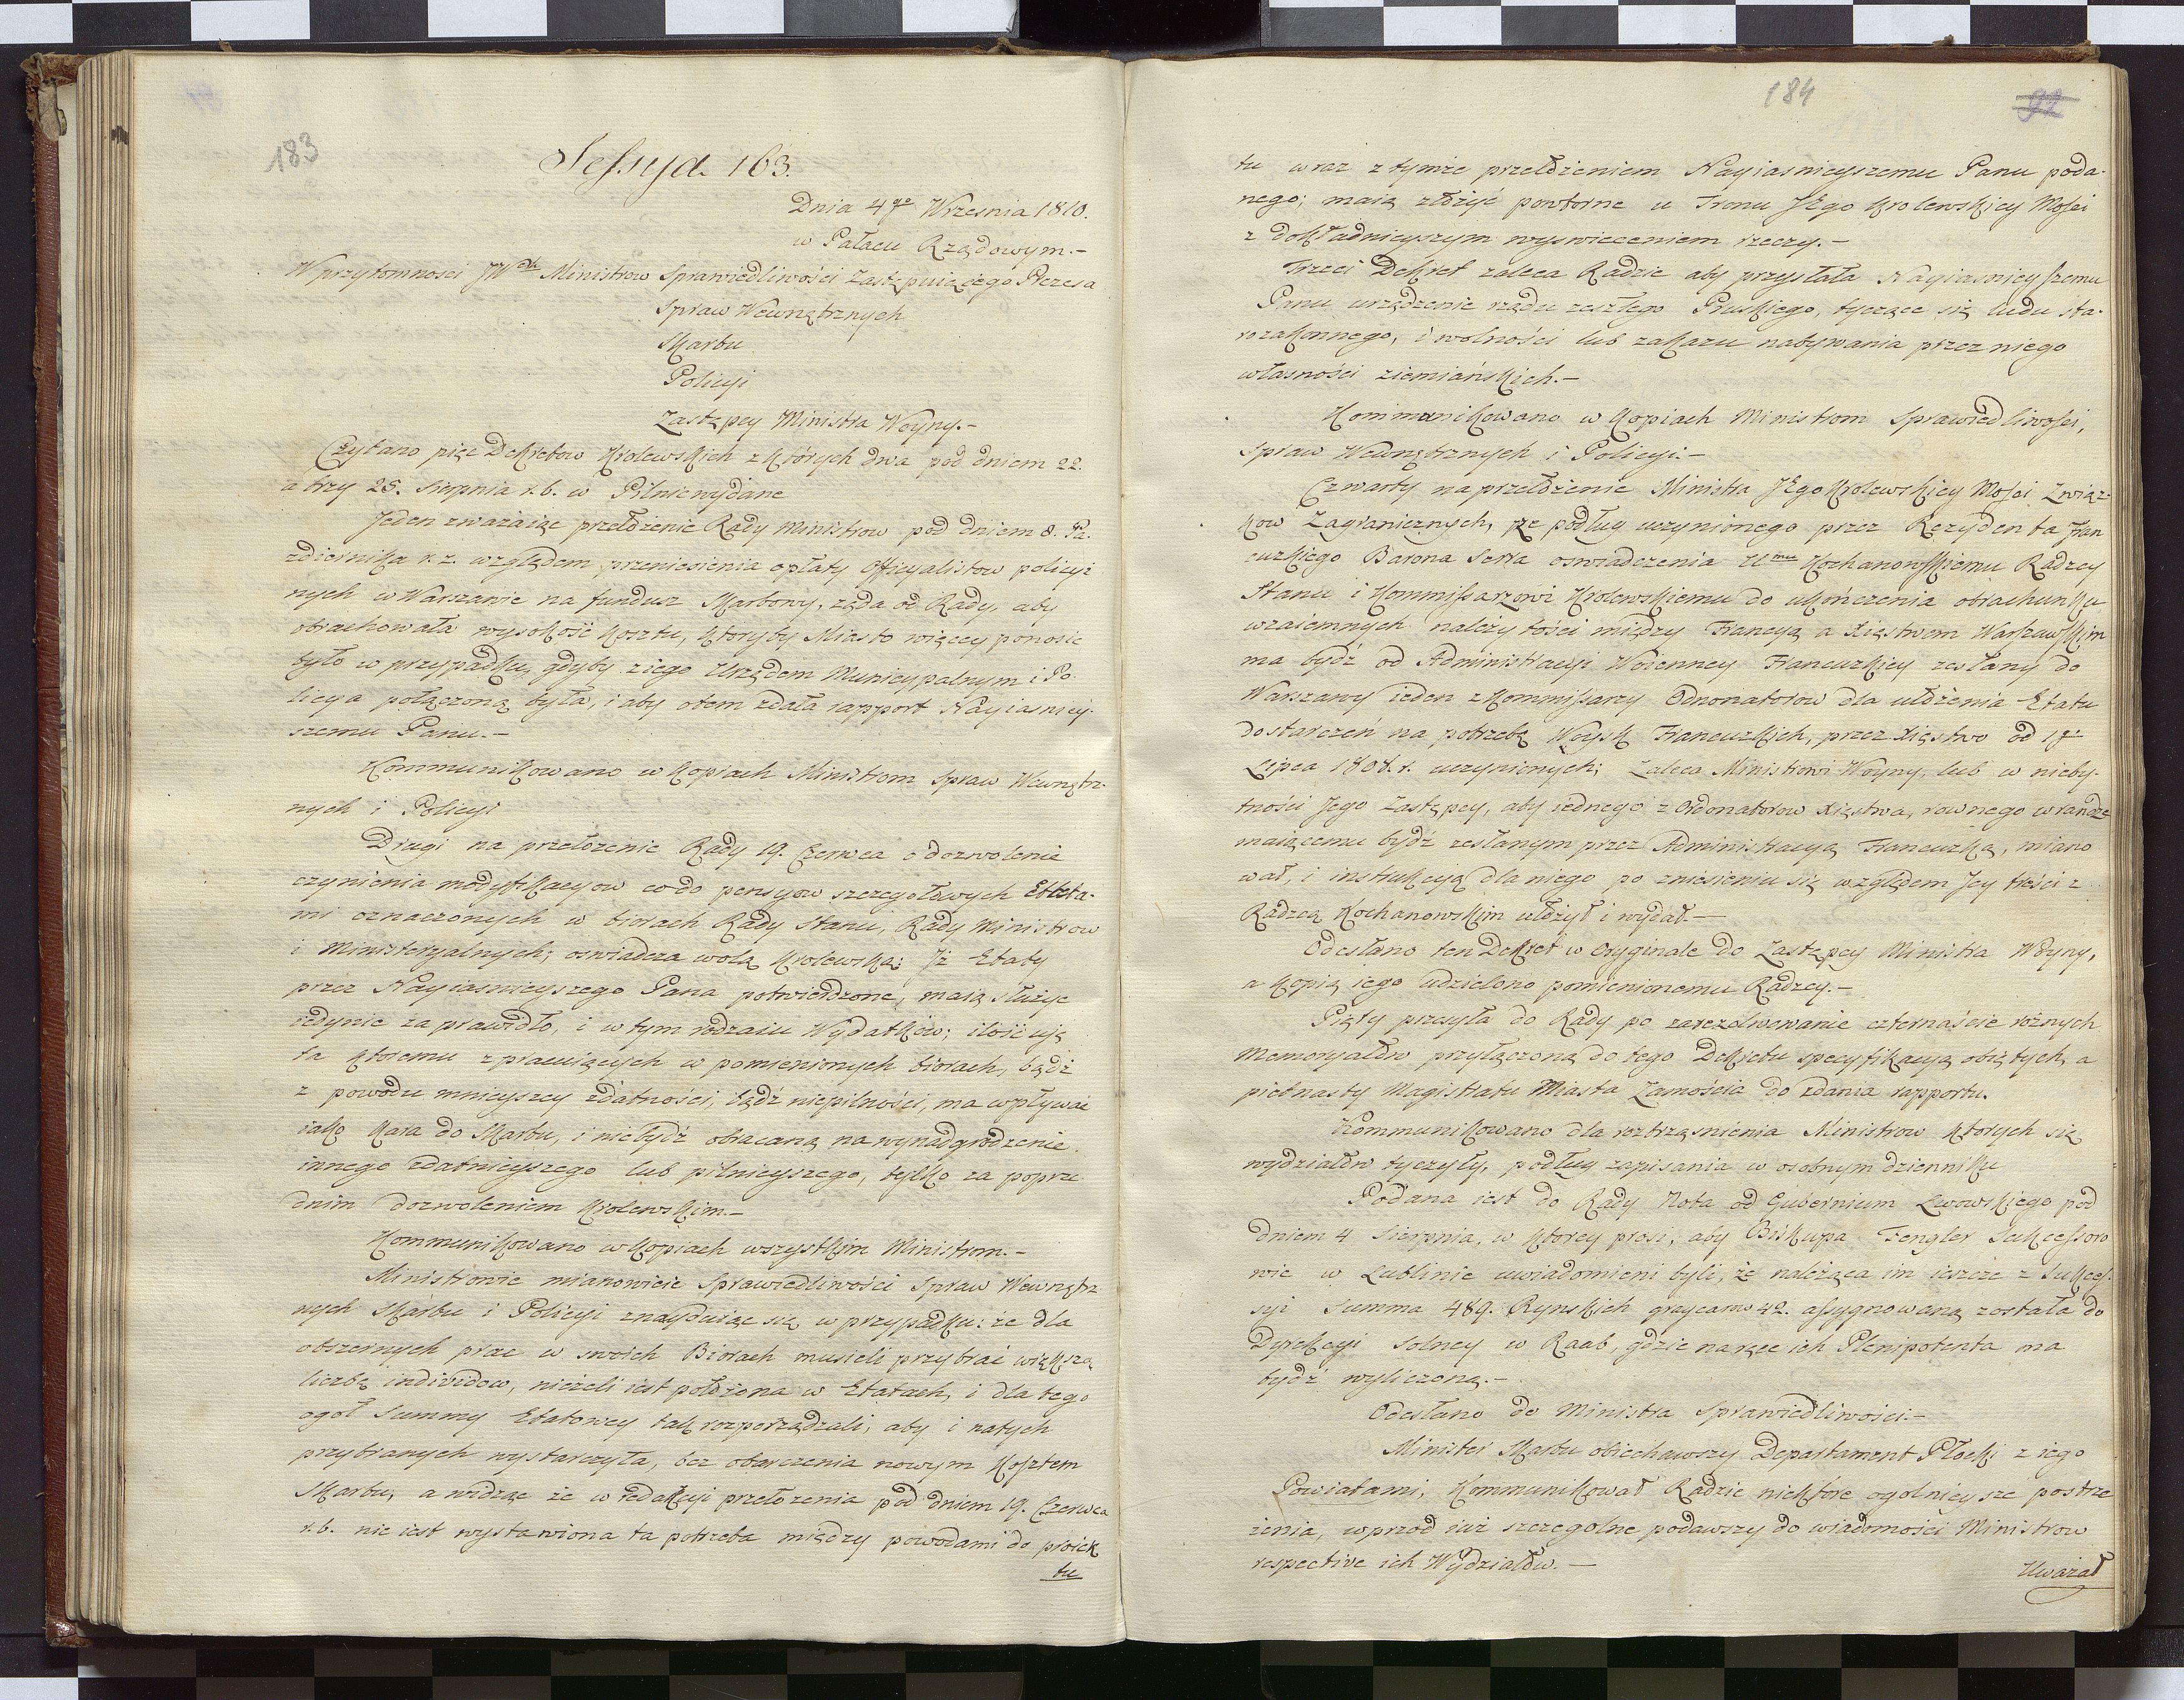 183
Sessya. 163.
Dnia 4go Wrzesnia 1810.
w Pałacu Rządowym.-
W przytomnosci JWch Ministrow Sprawiedliwości Zastępuiącego Prezesa
Spraw Wewnętrznych
Skarbu
Policyi
Zastępcy Ministra Woyny.-
Czytano pięc Dekretow Krolewskich z których dwa pod dniem 22.
a trzy 25. Sierpnia r.b. w Pilnic wydane
Jeden zważaiąc przełożenie Rady Ministrow pod dniem 8. Pa-
zdziernika r.z. względem przeniesienia opłaty Officyalistow policyi
nych w Warszawie na fundusz Skarbowy, żąda od Rady, aby
obrachowała wysokość kosztu, ktoryby Miasto więcey ponosic
było w przypadku, gdyby z iego Urzędem Municypalnym i Po
licya połączoną była, i aby otem zdała rapport Nayiasniey-
szemu Panu.-
Kommunikowano w kopiach Ministrom Spraw Wewnętrz-
nych i Policyi
Drugi na przełozenie Rady 19. Czerwca o dozwolenie
czynienia modyfikacyow co do pensyow szczegołowych Etata-
mi oznaczonych w biorach Rady Stanu, Rady Ministrow
i Ministeryalnych; oswiadcza wolą Krolewską; Iż Etaty
przez Nayiasnieyszego Pana potwierdzone, maią służyc
iedynie za prawidło, i w tym rodzaiu Wydatków; ilość uję
ta ktoremu z pracuiących w pomienionych biorach, bądź
z powodu mnieyszey zdatności, bądź niepilności, ma wpływać
iako kara do Skarbu, i niebydź obracaną na wynadgrodzenie
innego zdatnieyszego lub pilnieyszego, tylko za poprze
dnim dozwoleniem Krolewskim.-
Kommunikowano w kopiach wszystkim Ministrom.-
Ministrowie mianowicie Sprawiedliwości Spraw Wewnętrz
nych Skarbu i Policyi znayduiąc się w przypadku: że dla
obszernych prac w swoich Biorach musieli przybrać większą
liczbę indiwidow, nieżeli iest położona w Etatach, i dla tego
ogoł Summy Etatowey tak rozporządzali, aby i na tych
przybranych wystarczyła, bez obarczenia nowym kosztem
Skarbu, a widząc że w redakcyi przełozenia pod dniem 19. Czerwca
r.b. nie iest wystawiona ta potrzeba między powodami do proiek
tu
184
92
tu wraz z tymże przełożeniem Nayiasnieyszemu Panu poda-
nego; maią złożyć powtorne u Tronu JKgo Krolewskiey Mości
z dokładnieyszym wyswieceniem rzeczy.-
Trzeci Dekret zaleca Radzie aby przysłała Nayiasnieyszemu
Panu urządzenie rządu zeszłego Pruskiego, tyczące się ludu sta-
rozakonnego, i wolności lub zakazu nabywania przez niego
własności ziemiańskich.-
Kommunikowano w kopiach Ministrom Sprawiedliwości,
Spraw Wewnętrznych i Policyi.-
Czwarty na przełożenie Ministra JKgo Krolewskiey Mości Związ-
kow Zagranicznych, że podług uczynionego przez Rezydenta Fran
cuzkiego Barona Serra oswiadczenia Urmu Kochanowskiemu Radzcy
Stanu i Kommissarzowi Krolewskiemu do ukończenia obrachunku
wzaiemnych należytości między Francyą a Xięstwem Warszawskim
ma bydź od Administracyi Woienney Francuzkiey zesłany do
Warszawy ieden z kommissarzy Odnonatorow dla ułożenia Etatu
dostarczeń na potrzebę Woysk Francuzkich, przez Xięstwo od 1go
Lipca 1808. r. uczynionych; Zaleca Ministrowi Woyny, lub w nieby-
tności Jego Zastępcy, aby iednego z Ordonatorow Xięstwa, rownego w randze
maiącemu bydź zesłanym przez Administracyą Francuzką, miano
wał, i instrukcyą dla niego po zniesieniu się względem Jey treści z
Radzcą Kochanowskim ułożył i wydał.-
Odesłano ten Dekret w Oryginale do Zastępcy Ministra Woyny,
a kopią iego udzielono pomienionemu Radzcy.-
Piąty przesyła do Rady po zarezolwowanie czternaście rożnych
Memoryałow przyłączoną do tego Dekretu specyfikacyą obiętych, a
piętnasty Magistratu Miasta Zamościa do zdania rapportu.
Kommunikowano dla roztrząsnienia Ministrow ktorych się
wydziałów tyczyły, podług zapisania w osobnym dzienniku
Podana iest do Rady Nota od Gubernium Lwowskiego pod
dniem 4 Sierpnia, w ktorey prosi, aby Biskupa Fengler Sukcessoro
wie w Lublinie uwiadomieni byli, że należąca im ieszcze z Sukces-
syi Summa 489. Rynskich graycarow 42. assygnowaną została do
Dyrekcyi Solney w Raab, gdzie na ręce ich Plenipotenta ma
bydź wyliczoną.-
Odesłano do Ministra Sprawiedliwości.-
Minister Skarbu obiechawszy Departament Płocki z iego
Powiatami, Kommunikował Radzie niektóre ogolnieysze postrze
żenia, wprzod iuż szczegolne podawszy do wiadomości Ministrow
respective ich Wydziałów.-
Uważał